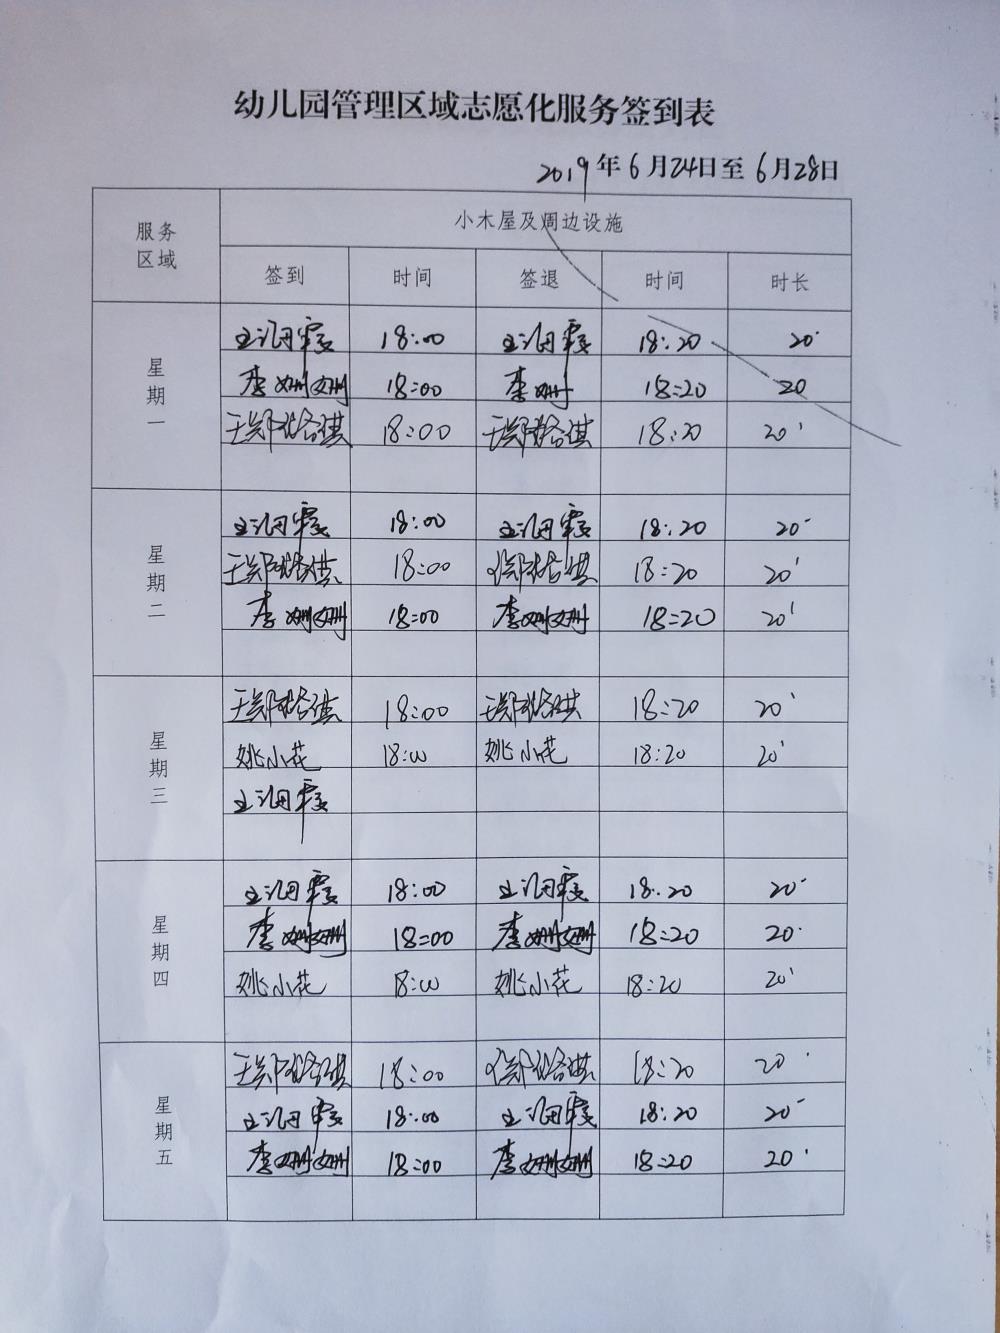 幼儿园管理区域志愿化服务签到表
2019年6月24日至6月28日
服务区域 小木屋及周边设施
签到 时间 签退 时间 时长
星期一
王海霞 18:00 王海霞 18:20 20'
李姗姗 18:00 李姗 18:20 20
18:00 18:20 20'
星期二
王海霞 18:00 王海霞 18:20 20'
18:00 18:20 20'
李姗姗 18:00 李姗姗 18:20 20'
星期三
18:00 18:20 20'
姚小花 18:00 姚小花 18:20 20'
王海霞
星期四
王海霞 18:00 王海霞 18:20 20'
李姗姗 18:00 李姗姗 18:20 20'
姚小花 18:00 姚小花 18:20 20'
星期五
18:00 18:20 20'
王海霞 18:00 王海霞 18:20 20'
李姗姗 18:00 李姗姗 18:20 20'